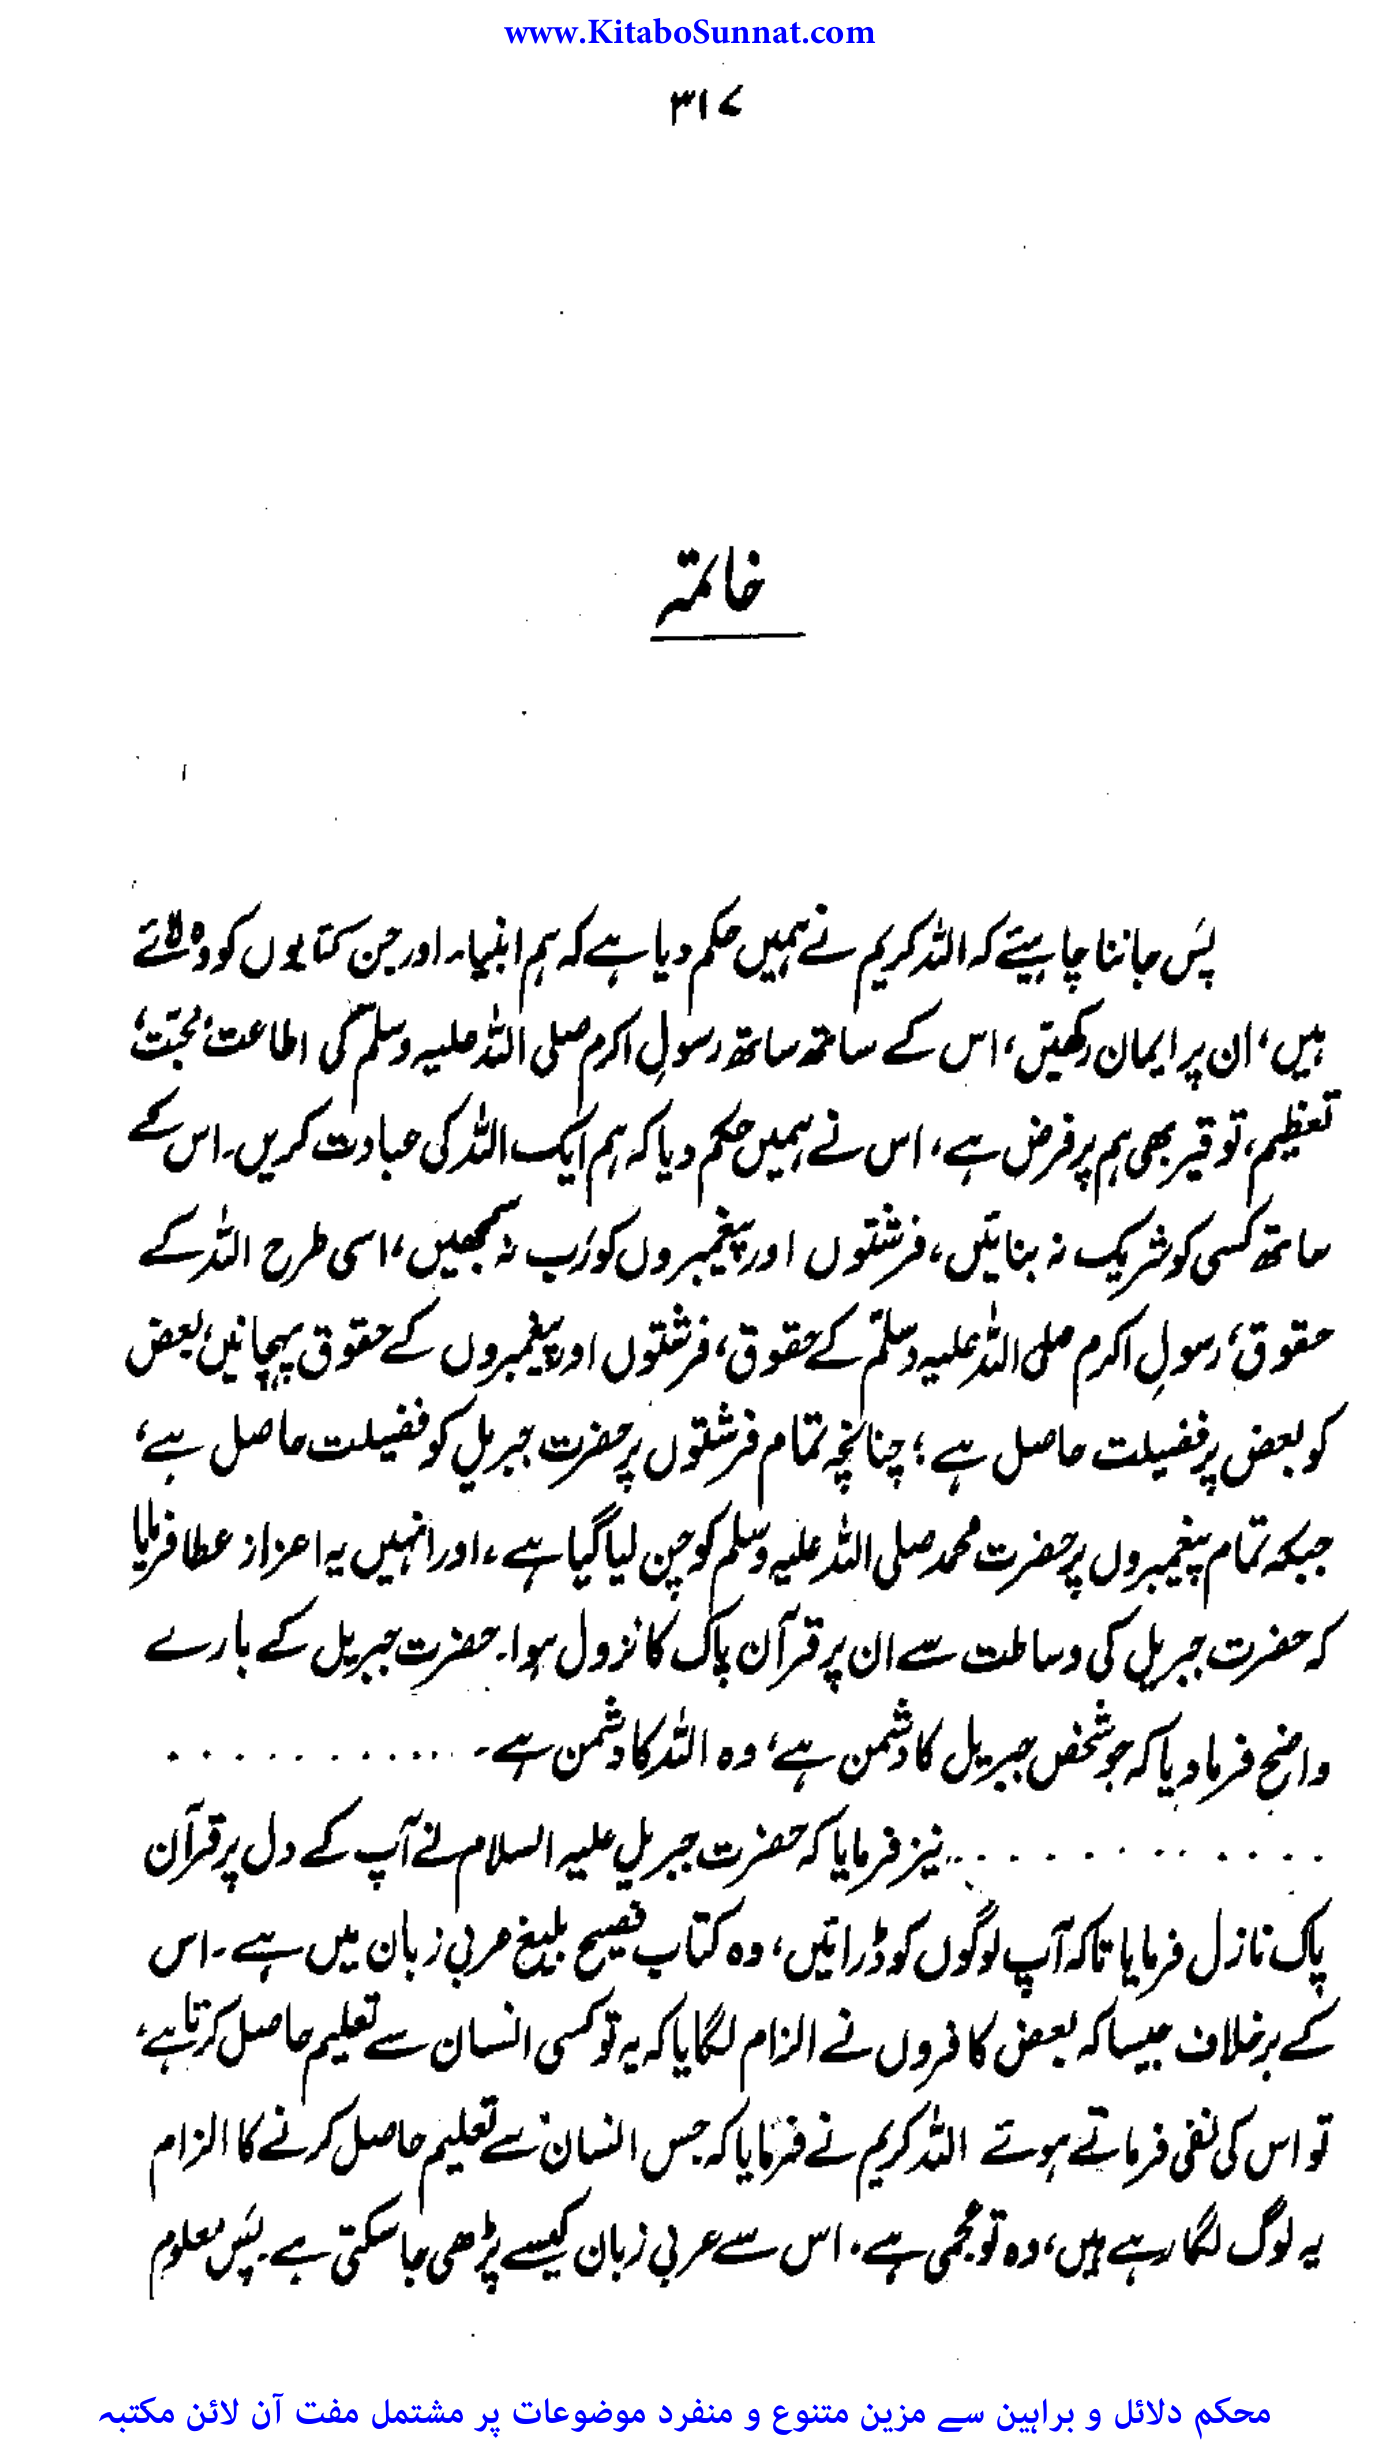 www.KitaboSunnat.com
۳۱۷
خاتمہ
پس جاننا چاہیئے کہ اللہ کریم نے ہمیں حکم دیا ہے کہ ہم انبیاء اور جن کتابوں کو وہ لائے
ہیں، ان پر ایمان رکھیں، اس کے ساتھ ساتھ رسولِ اکرم صلی اللہ علیہ وسلم کی اطاعت، محبّت،
تعظیم، توقیر بھی ہم پر فرض ہے، اس نے ہمیں حکم دیا کہ ہم ایک اللہ کی عبادت کریں۔ اس کے
ساتھ کسی کو شریک نہ بنائیں، فرشتوں اور پیغمبروں کو رَب نہ سمجھیں، اسی طرح اللہ کے
حقوق، رسولِ اکرم صلی اللہ علیہ وسلّم کے حقوق، فرشتوں اور پیغمبروں کے حقوق پہچانیں، بعض
کو بعض پر فضیلت حاصل ہے؛ چنانچہ تمام فرشتوں پر حضرت جبریل کو فضیلت حاصل ہے،
جبکہ تمام پیغمبروں پر حضرت محمد صلی اللہ علیہ وسلم کو چن لیا گیا ہے، اور انہیں یہ اعزاز عطا فرمایا
کہ حضرت جبریل کی وساطت سے ان پر قرآن پاک کا نزول ہوا۔ حضرت جبریل کے بارے
واضح فرما دیا کہ جو شخص جبریل کا دشمن ہے، وہ اللہ کا دشمن ہے۔ . . . . . . . . . . . .
. . . . . . . . . . . . نیز فرمایا کہ حضرت جبریل علیہ السلام نے آپ کے دل پر قرآن
پاک نازل فرمایا تاکہ آپ لوگوں کو ڈرائیں، وہ کتاب فصیح بلیغ عربی زبان میں ہے۔ اس
کے برخلاف جیسا کہ بعض کافروں نے الزام لگایا کہ یہ تو کسی انسان سے تعلیم حاصل کرتا ہے،
تو اس کی نفی فرماتے ہوئے اللہ کریم نے فرمایا کہ جس انسان سے تعلیم حاصل کرنے کا الزام
یہ لوگ لگا رہے ہیں، وہ تو عجمی ہے۔ اس سے عربی زبان کیسے پڑھی جا سکتی ہے۔ پس معلوم
محکم دلائل و براہین سے مزین متنوع و منفرد موضوعات پر مشتمل مفت آن لائن مکتبہ